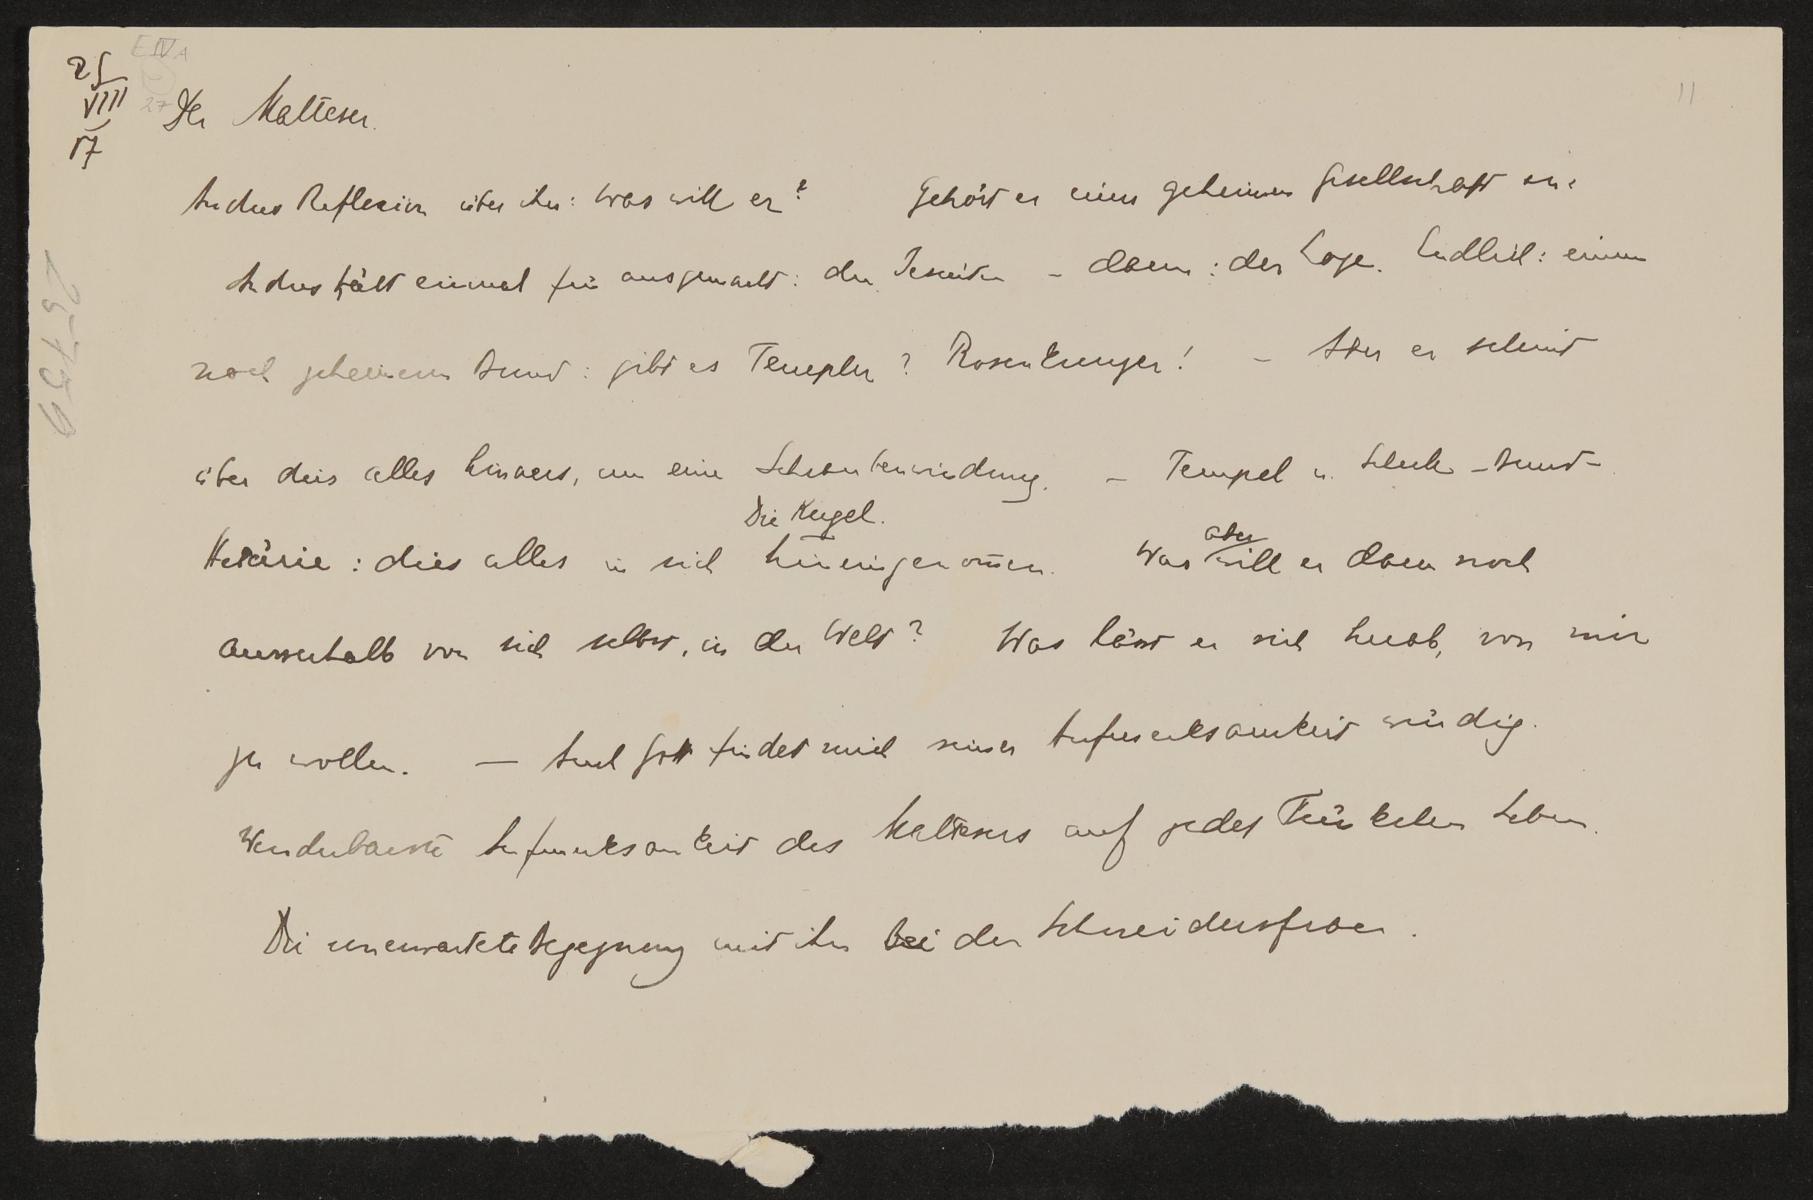 E IV A
2
27
25
VIII
17
11
Der Malteser.
Andres Reflexion über ihn: was will er? Gehört er einer geheimen Gesellschaft an:
Andres hält einmal für ausgemacht: den Jesuiten – dann: der Loge. Endlich: einem
noch geheimern Bund: gibt es Templer? Rosenkreuzer! – Aber er scheint
über dies alles hinaus, um eine Schraubenwindung. – Tempel u. Bund –
Die Kugel.
Hetärie: dies alles in sich hineingenom̄en. Was aber will er dann noch
ausserhalb von sich selbst, in der Welt? Was lässt er sich herab, von mir
zu wollen. — Auch Gott findet mich seiner Aufmerksamkeit würdig.
Wunderbarste Aufmerksamkeit des Maltesers auf jedes Fünkchen Leben.
Die unerwartete Begegnung mit ihm bei der Schneidersfrau.
25759